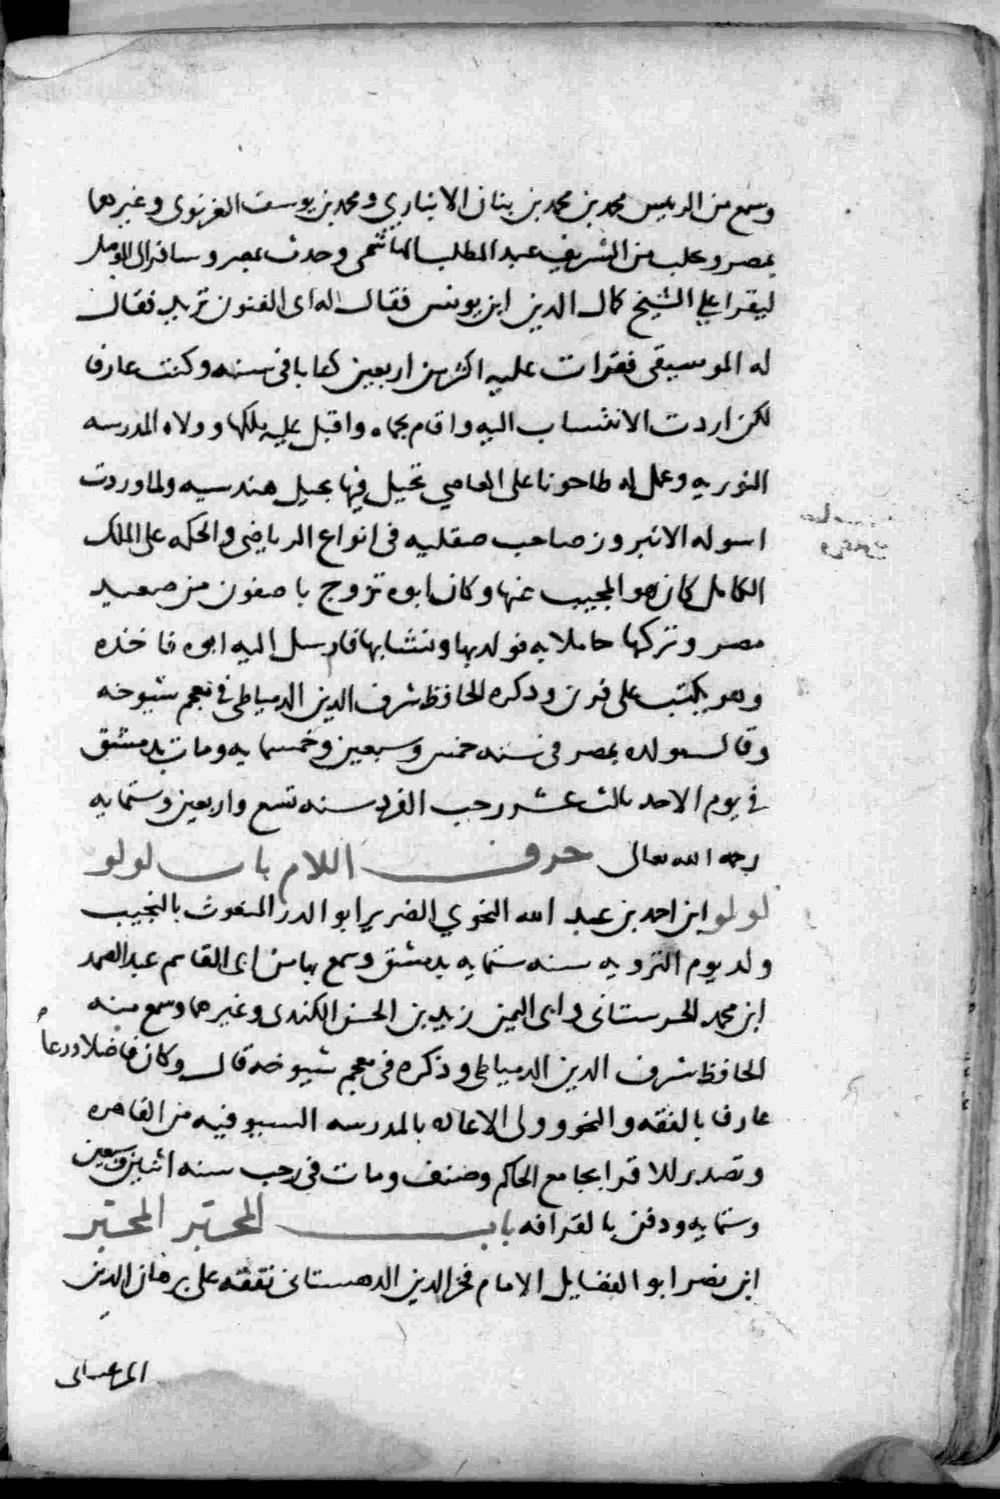 وسمع من الريس محمد بن محمد بن بنان الانباري ومحمد بن يوسف الغزنوى وغيرهما
بمصر وبحلب من الشريف عبد المطلب الهاشمى وحدث بمصر وسافر الى الموصل
ليقرا على الشيخ كمال الدين ابن يونس فقال له اى الفنون تريد فقال
له الموسيقى فقرات عليه اكثر من اربعين كتابا فى سنه وكنت عارفا
لكن اردت الانتساب اليه واقام بحماه واقبل عليه ملكها وولاه المدرسه
النوريه وعمل له طاحونا على العاصي تحيل فيها بحيل هندسيه ولما وردت
اسوله الانبرور صاحب صقليه فى انواع الرياضى والحكمه على الملك
الكامل كان هو المجيب عنها وكان ابوه تزوج باصفون من صعيد
مصر وتركها حاملا به فولد بها ونشا بها فارسل اليه ابوه فاخذه
وهو يكتب على فرن وذكره الحافظ شرف الدين الدمياطى فى معجم شيوخه
وقال مولده بمصر فى سنه خمس وسبعين وخمسمايه ومات بدمشق
فى يوم الاحد ثالث عشر رجب الفرد سنه تسع واربعين وستمايه
رحمه الله تعالى حرف اللام باب لولو
لولو ابن احمد بن عبد الله النحوي الضرير ابو الدر المنعوت بالنجيب
ولد يوم الترويه سنه ستمايه بدمشق وسمع بها من ابى القاسم عبد الصمد
ابن محمد الحرستانى وابى اليمن زيد بن الحسن الكندى وغيرهما وسمع منه
الحافظ شرف الدين الدمياطى وذكره فى معجم شيوخه قال وكان فاضلا ورعا
عارفا بالفقه والنحو وولى الاعاده بالمدرسه السيوفيه من القاهره
وتصدير للاقرا بجامع الحاكم وصنف ومات فى رجب سنه اثنين وسبعين
وستمايه ودفن بالقرافه باب المحتبر المحتبر
ابن نصر ابو الفضايل الامام فخر الدين الدهستانى تفقه على برهان الدين